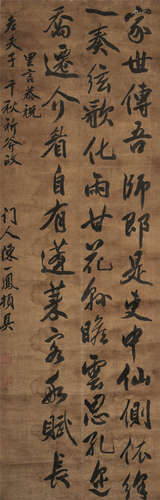 家世傳吾師即是吏中仙側依絳
一奏弦歌化雨甘花縣瞻雲思孔迩
喬遷介眉自有蓬萊客永賦長
里言恭祝
老夫子千秋祈斧政
门人陳一鳳頓具